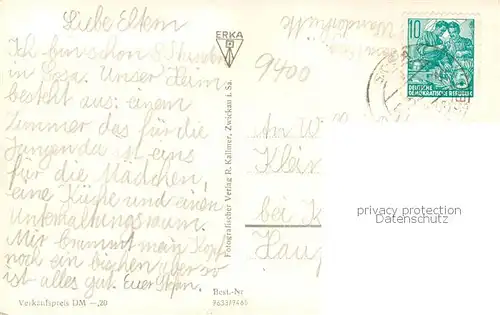 Liebe Eltern
Ich bin schon 8 Stunden
in Unser Heim
besteht aus: einem
Zimmer das für die
Jungen da ist eins
für die Mädchen,
eine Küche und einen
Unterhaltungsraum.
Mir brummt man Kopf
noch ein bischen aber so
ist alles gut. Euer Stefan.
Verkaufspreis DM —,20
ERKA
Fotografischer Verlag R. Kallmer, Zwickau i. Sa.
Best.-Nr
9400
10
DEUTSCHE
DEMOKRATISCHE REPUBLIK
An
Klein
bei K
Haup
privacy protection
Datenschutz